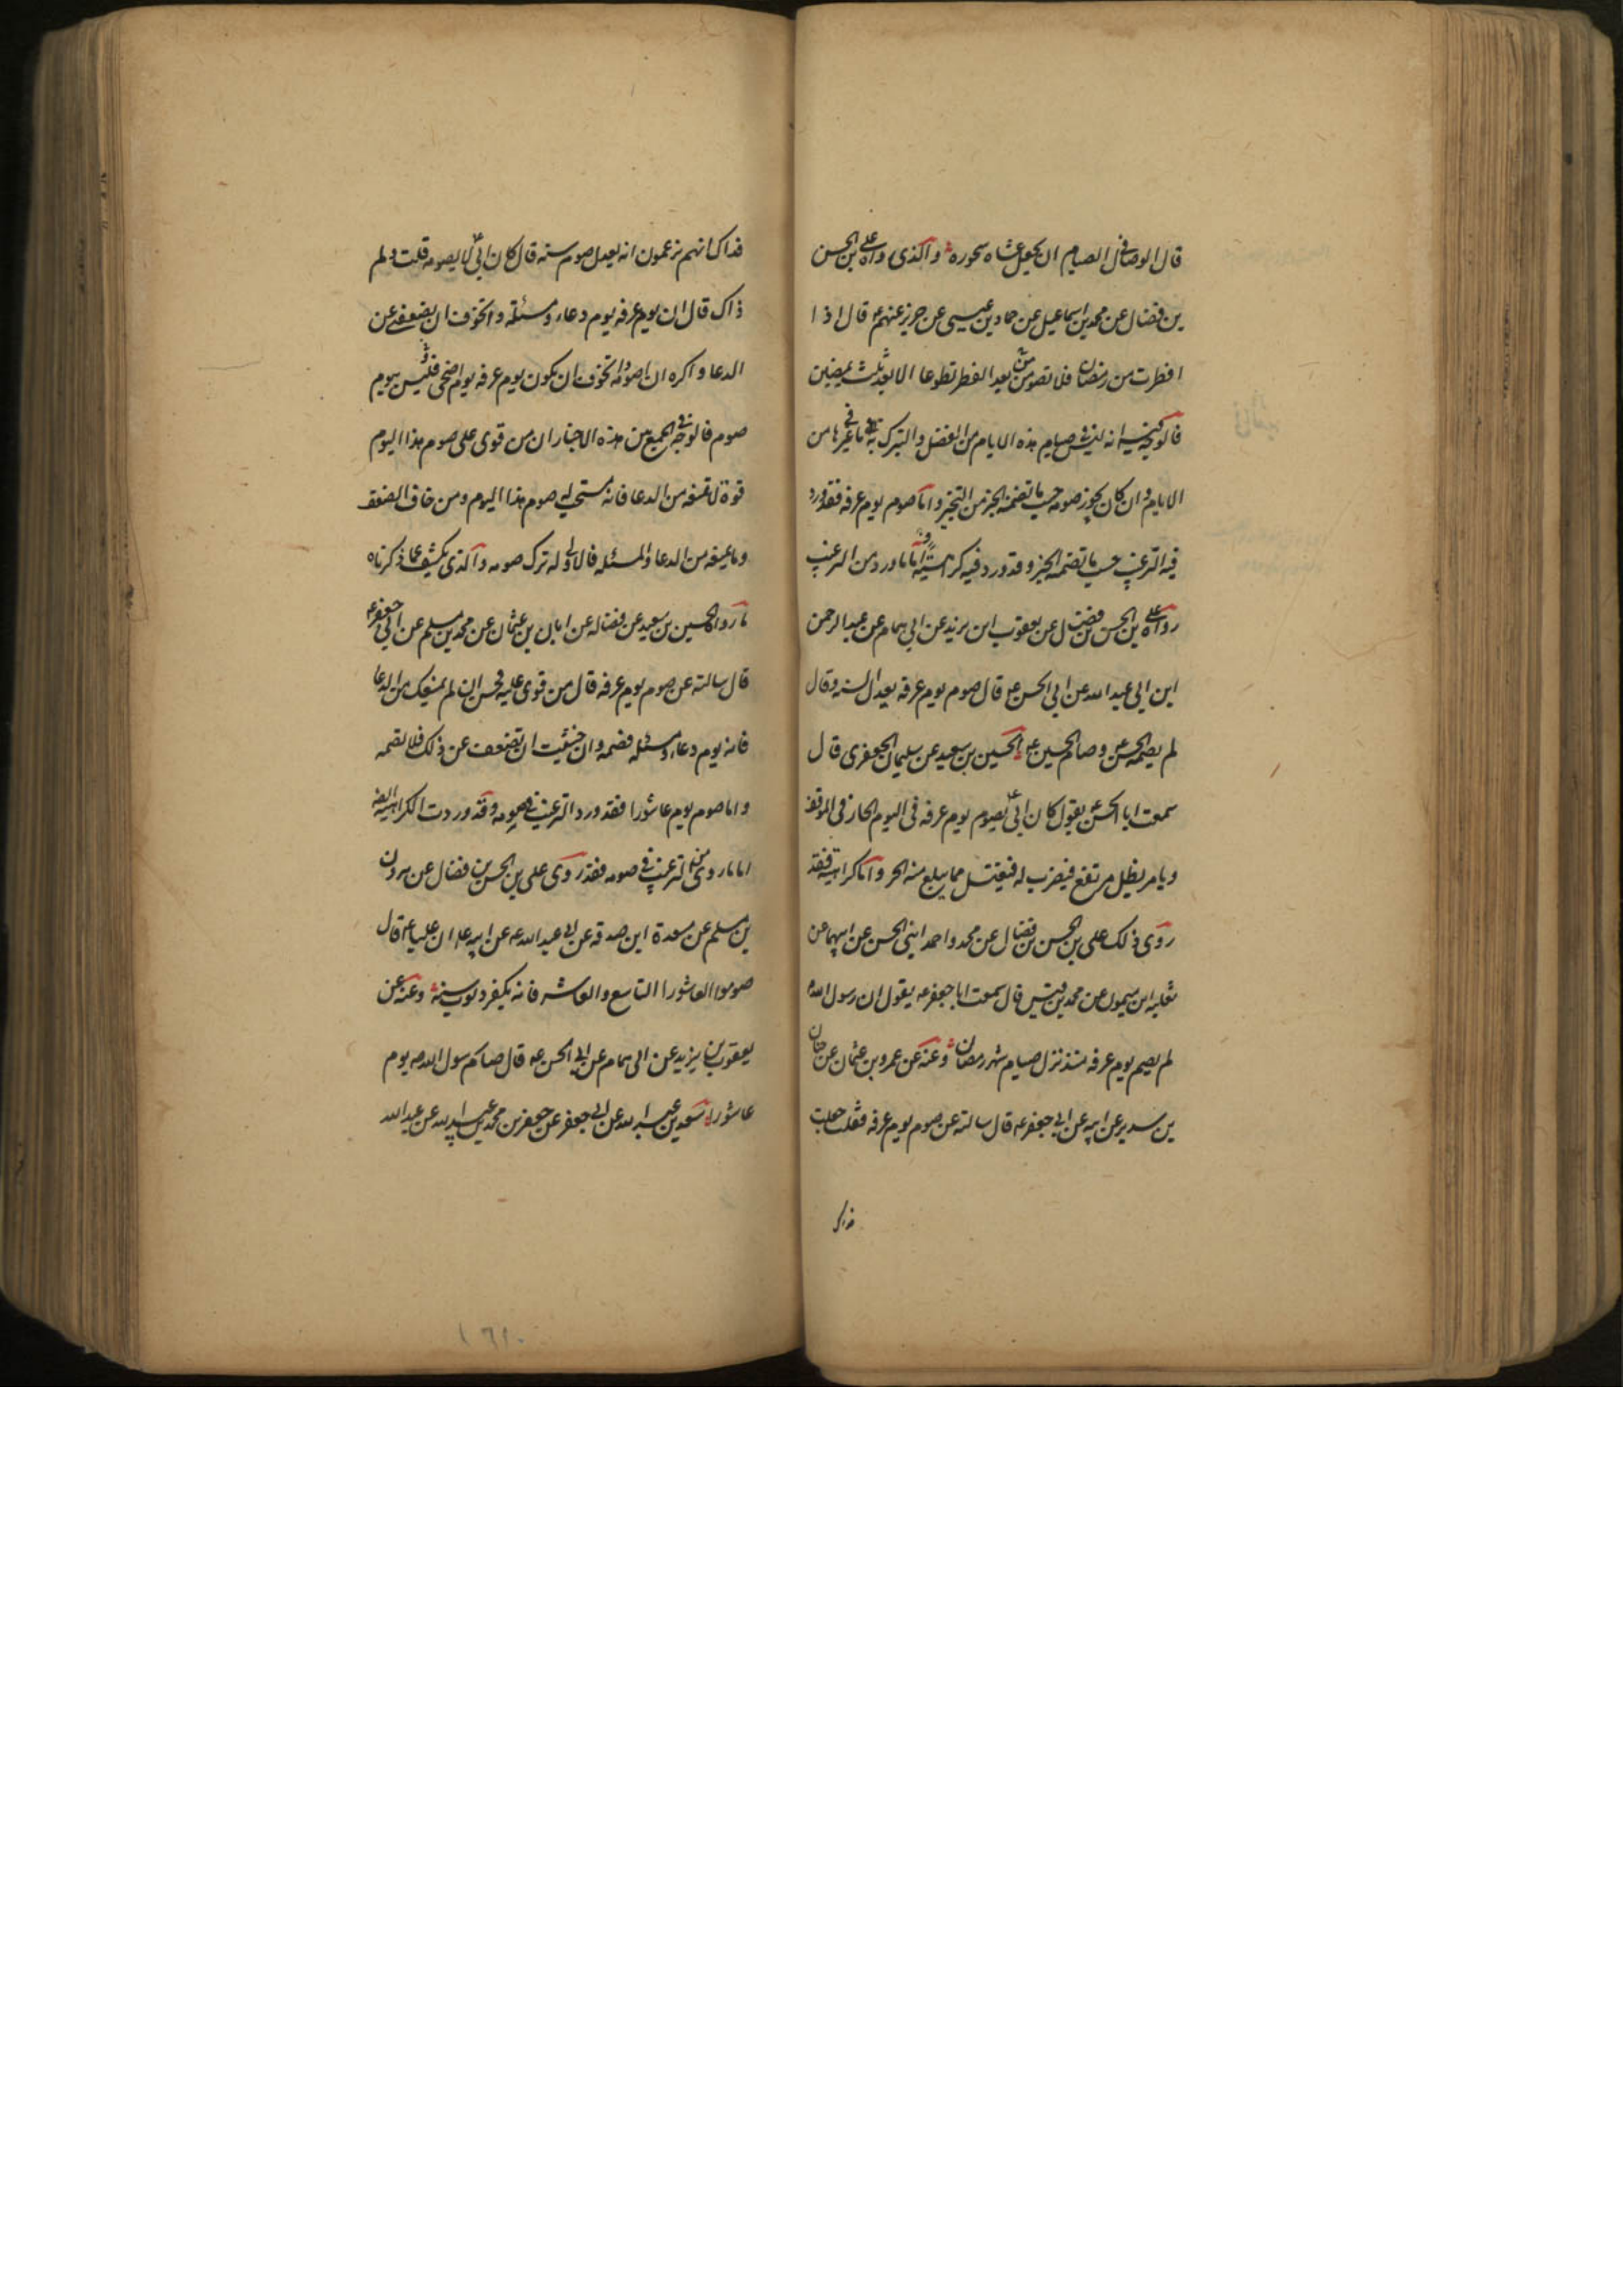 قال الوصال فى الصيام ان يجعل عشاه سحوره والذى رواه على بن الحسن
بن فضال عن محمد بن اسماعيل عن حماد بن عيسى عن حريز عنهم ع قال اذا
افطرت من رمضان فلا تصومن بعد الفطر تطوعا الا بعد ثلث يمضين
فالوجه فيه انه ليس فى صيام هذه الايام من الفضل والتبرك به ما فى غيرها من
الايام وان كان يجوز صومه حسب ما تضمنه الخبر من التخيير واما صوم يوم عرفه فقد ورد
فيه الترغيب حسب ما تضمنه الخبر وقد ورد فيه كراهية اما ما ورد من الترغيب
رواه على بن الحسن بن فضال عن يعقوب ابن يزيد عن ابى همام عن عبد الرحمن
ابن ابى عبد الله عن ابى الحسن ع قال صوم يوم عرفه يعدل السنه وقال
لم يصمه الحسن وصامه الحسين ع الحسين بن سعيد عن سليمان الجعفرى قال
سمعت ابا الحسن ع يقول كان ابى ع يصوم يوم عرفه فى اليوم الحار فى الموقف
ويامر بظل مرتفع فيضرب له فيغتسل مما يبلغ منه الحر واما كراهيته فقد
روى ذلك على بن الحسن بن فضال عن محمد واحمد ابنى الحسن عن ابيهما عن
ثعلبه ابن ميمون عن محمد بن قيس قال سمعت ابا جعفر ع يقول ان رسول الله
لم يصم يوم عرفه منذ نزل صيام شهر رمضان وعنه عن عمرو بن عثمان عن حنان
بن سدير عن ابيه عن ابى جعفر ع قال سالته عن صوم يوم عرفه فقلت جعلت
فداك
فداك انهم يزعمون انه يعدل صوم سنه قال كان ابى ع لا يصومه قلت ولم
ذاك قال ان يوم عرفه يوم دعاء ومسئلة واتخوف ان يضعفنى عن
الدعا واكره ان اصومه واتخوف ان يكون يوم عرفه يوم اضحى فليس بيوم
صوم فالوجه فى الجمع بين هذه الاخبار ان من قوى على صوم هذا اليوم
قوة لا تمنعه من الدعا فانه يستحب له صوم هذا اليوم ومن خاف الضعف
وما يمنعه من الدعا والمسئله فالاولى له ترك صومه والذى يكشف عما ذكرناه
ما رواه الحسين بن سعيد عن فضاله عن ابان بن عثمان عن محمد بن مسلم عن ابى جعفر ع
قال سالته عن صوم يوم عرفه قال من قوى عليه فحسن ان لم يمنعك من الدعا
فانه يوم دعاء ومسئله فصمه وان خشيت ان تضعف عن ذلك فلا تصمه
واما صوم يوم عاشورا فقد ورد الترغيب فى صومه وقد وردت الكراهية فيه
اما ما روى من الترغيب فى صومه فقد روى على بن الحسن بن فضال عن هرون
بن مسلم عن مسعدة ابن صدقه عن ابى عبد الله ع عن ابيه ع ان عليا ع قال
صوموا العاشورا التاسع والعاشر فانه يكفر ذنوب سنة وعنه عن
يعقوب بن يزيد عن ابى همام عن ابى الحسن ع قال صام رسول الله ص يوم
عاشورا سعد بن عبد الله عن ابى جعفر عن جعفر بن محمد بن عبيد الله عن عبد الله
١٦١٠